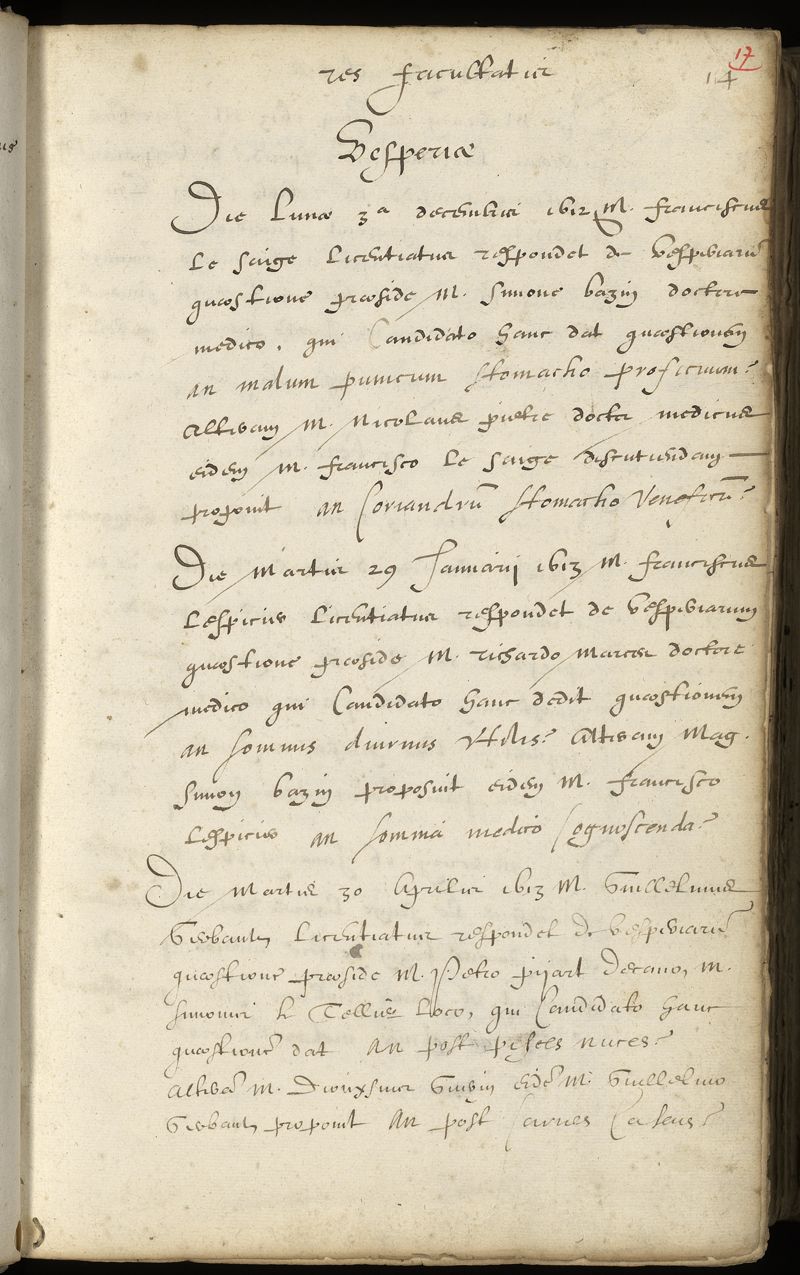 17
114
res facultatis
Vesperiæ
Die Lunæ 3ª decembris 1612 M. franciscus
Le Saige Licentiatus respondet de vesperiarū
quæstione præside M. Simone bazin doctore
medico, qui Candidato hanc dat quæstionem
an malum punicum stomacho proficuum?
Alteram M. Nicolaus pietre doctor medicus
eidem M. francisco Le Saige discutiendam
proponit an Coriandrū stomacho Veneficū?
Die Martis 29 Januarij 1613 M. franciscus
Lespicier Licentiatus respondet de vesperiarum
quæstione præside M. richardo Marcés doctore
medico qui Candidato hanc dedit quæstionem
an somnus diurnus Vtilis? Alteram Mag.
Simon bazin proposuit eidem M. francisco
Lespicier an somnia medico Cognoscenda?
Die Martis 30 Aprilis 1613 M. Guillelmus
licentiatus respondet de vesperiarū
quæstione præside M. Petro pijart Decano, M.
Simonis le Tellier Loco, qui Candidato hanc
quæstionē dat An post pisces nuces?
alterā M. Dionysius Guerin eidē M. Guillelmo
proponit An post Carnes Caseus?